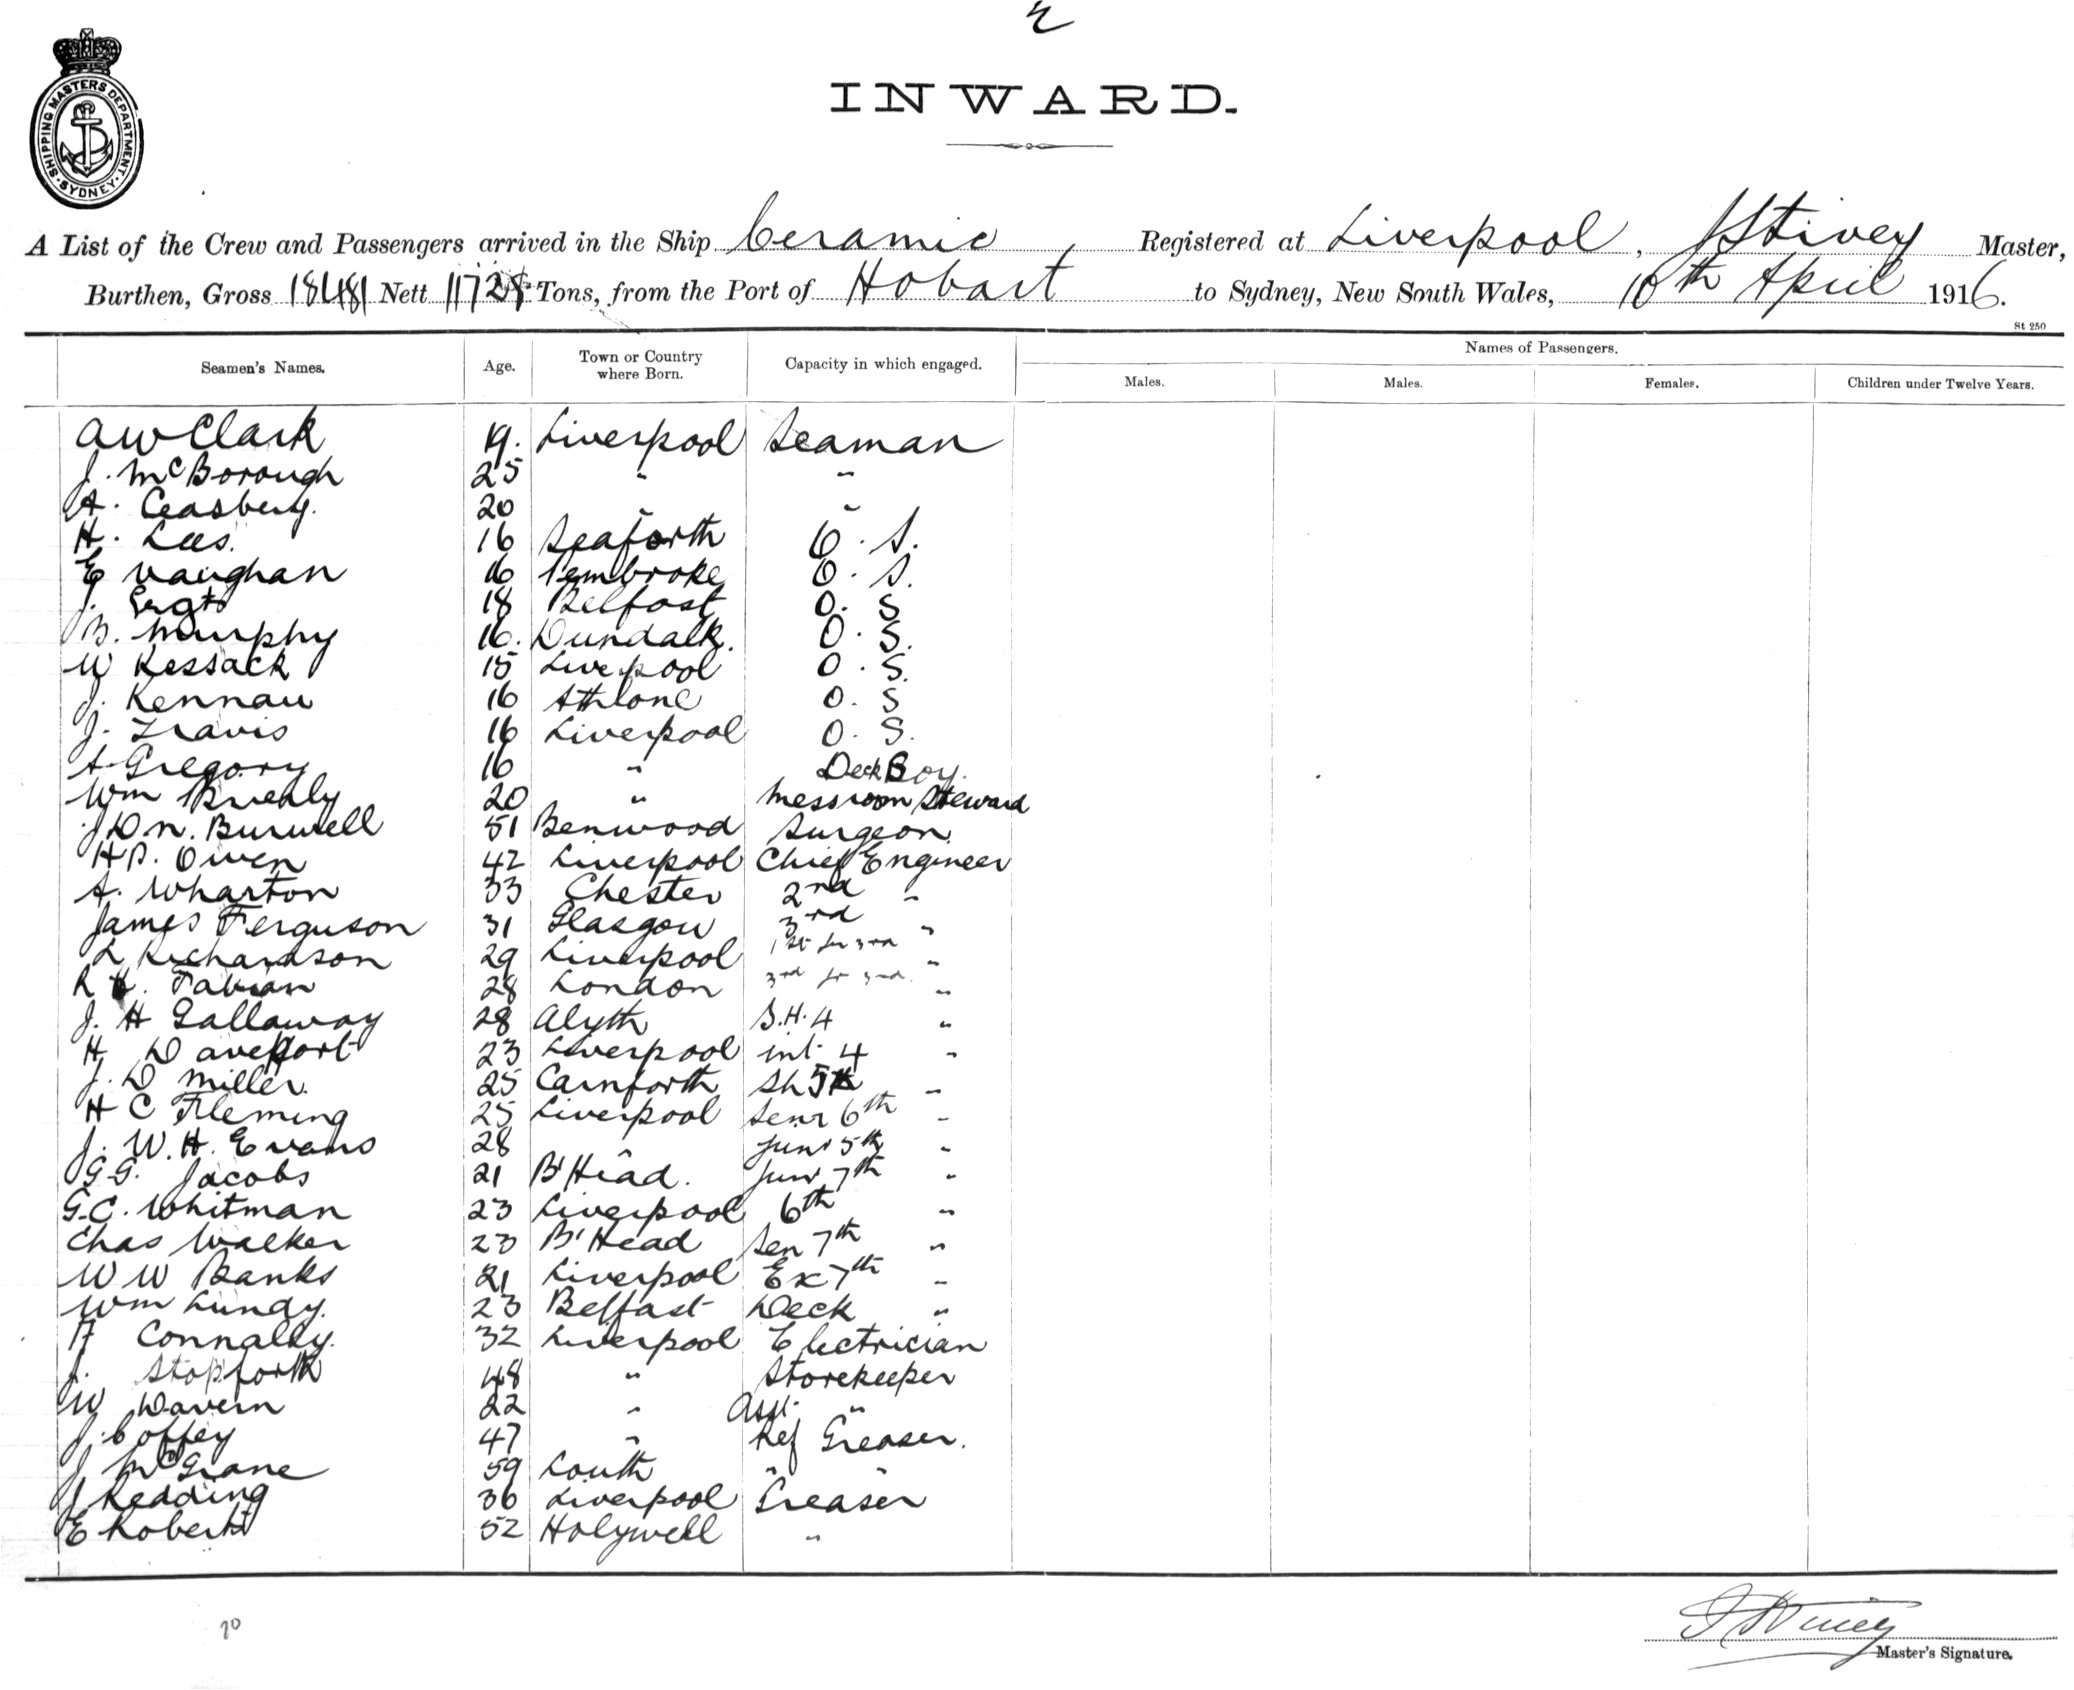 2
SHIPPING MASTERS DEPARTMENT SYDNEY
INWARD.
A List of the Crew and Passengers arrived in the Ship Ceramic, Registered at Liverpool, J Stivey Master,
Burthen, Gross 18481 Nett 11728 Tons, from the Port of Hobart to Sydney, New South Wales, 10th April 1916.
St 250
Seamen's Names. Age. Town or Country where Born. Capacity in which engaged. Names of Passengers.
Males. Males. Females. Children under Twelve Years.
A W Clark 19. Liverpool Seaman
J. McBorough 25 " "
A. Ceasberg. 20 " "
H. Lees. 16 Seaforth O. S.
E Vaughan 16 Pembroke O. S.
J. 18 Belfast O. S
B. Murphy 16. Dundalk. O. S.
W Kessack 15 Liverpool O. S.
J. Kennau 16 Athlone O. S
J. Travis 16 Liverpool O. S.
A Gregory 16 " Deck Boy.
Wm 20 " Messroom Steward
J D N. Burwell 51 Benwood Surgeon
H P. Owen 42 Liverpool Chief Engineer
A. Wharton 33 Chester 2nd "
James Ferguson 31 Glasgow 3rd "
L Richardson 29 Liverpool 1st Jr 3rd "
R H. Fabian 28 London 3rd Jr 3rd "
J. H Gallaway 28 Alyth S.H. 4 "
H Daveport 23 Liverpool int. 4 "
J. D Miller. 25 Carnforth Sh 5th "
H C Fleming 25 Liverpool Senr 6th "
J. W. H. Evans 28 " Junr 5th "
G G. Jacobs 21 B'Head. Junr 7th "
G. C. Whitman 23 Liverpool 6th "
Chas Walker 23 B'Head Sen 7th "
W W Banks 21 Liverpool Ex 7th "
Wm Lundy. 23 Belfast Deck "
A Connally. 32 Liverpool Electrician
J. Stopforth 48 " Storekeeper
W Davern 22 " Asst. "
J. Coffey 47 " Ref Greaser.
J McGrane 59 Louth " "
J Redding 36 Liverpool Greaser
E Roberts 52 Holywell "
J Stivey
Master's Signature.